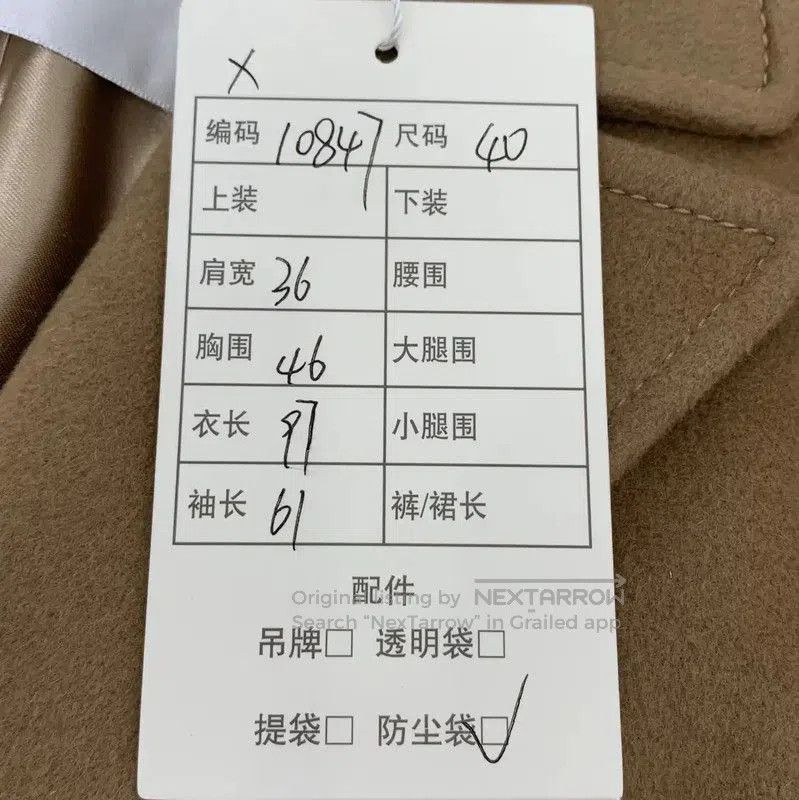 X
编码 10847 尺码 40
上装 下装
肩宽 36 腰围
胸围 46 大腿围
衣长 97 小腿围
袖长 61 裤/裙长
配件
Original listing by NEXTARROW
Search "NexTarrow" in Grailed app
吊牌□ 透明袋□
提袋□ 防尘袋☑